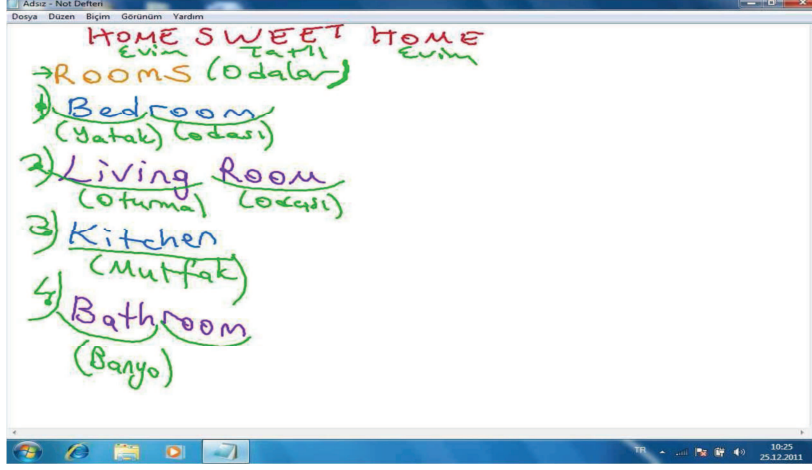 Adsız - Not Defteri
Dosya Düzen Biçim Görünüm Yardım
HOME SWEET HOME
Evim Tatlı Evim
→ROOMS (Odalar)
1) Bedroom
(Yatak) (odası)
2) Living Room
(Oturma) (Odası)
3) Kitchen
(Mutfak)
4) Bathroom
(Banyo)
TR 10:25
25.12.2011